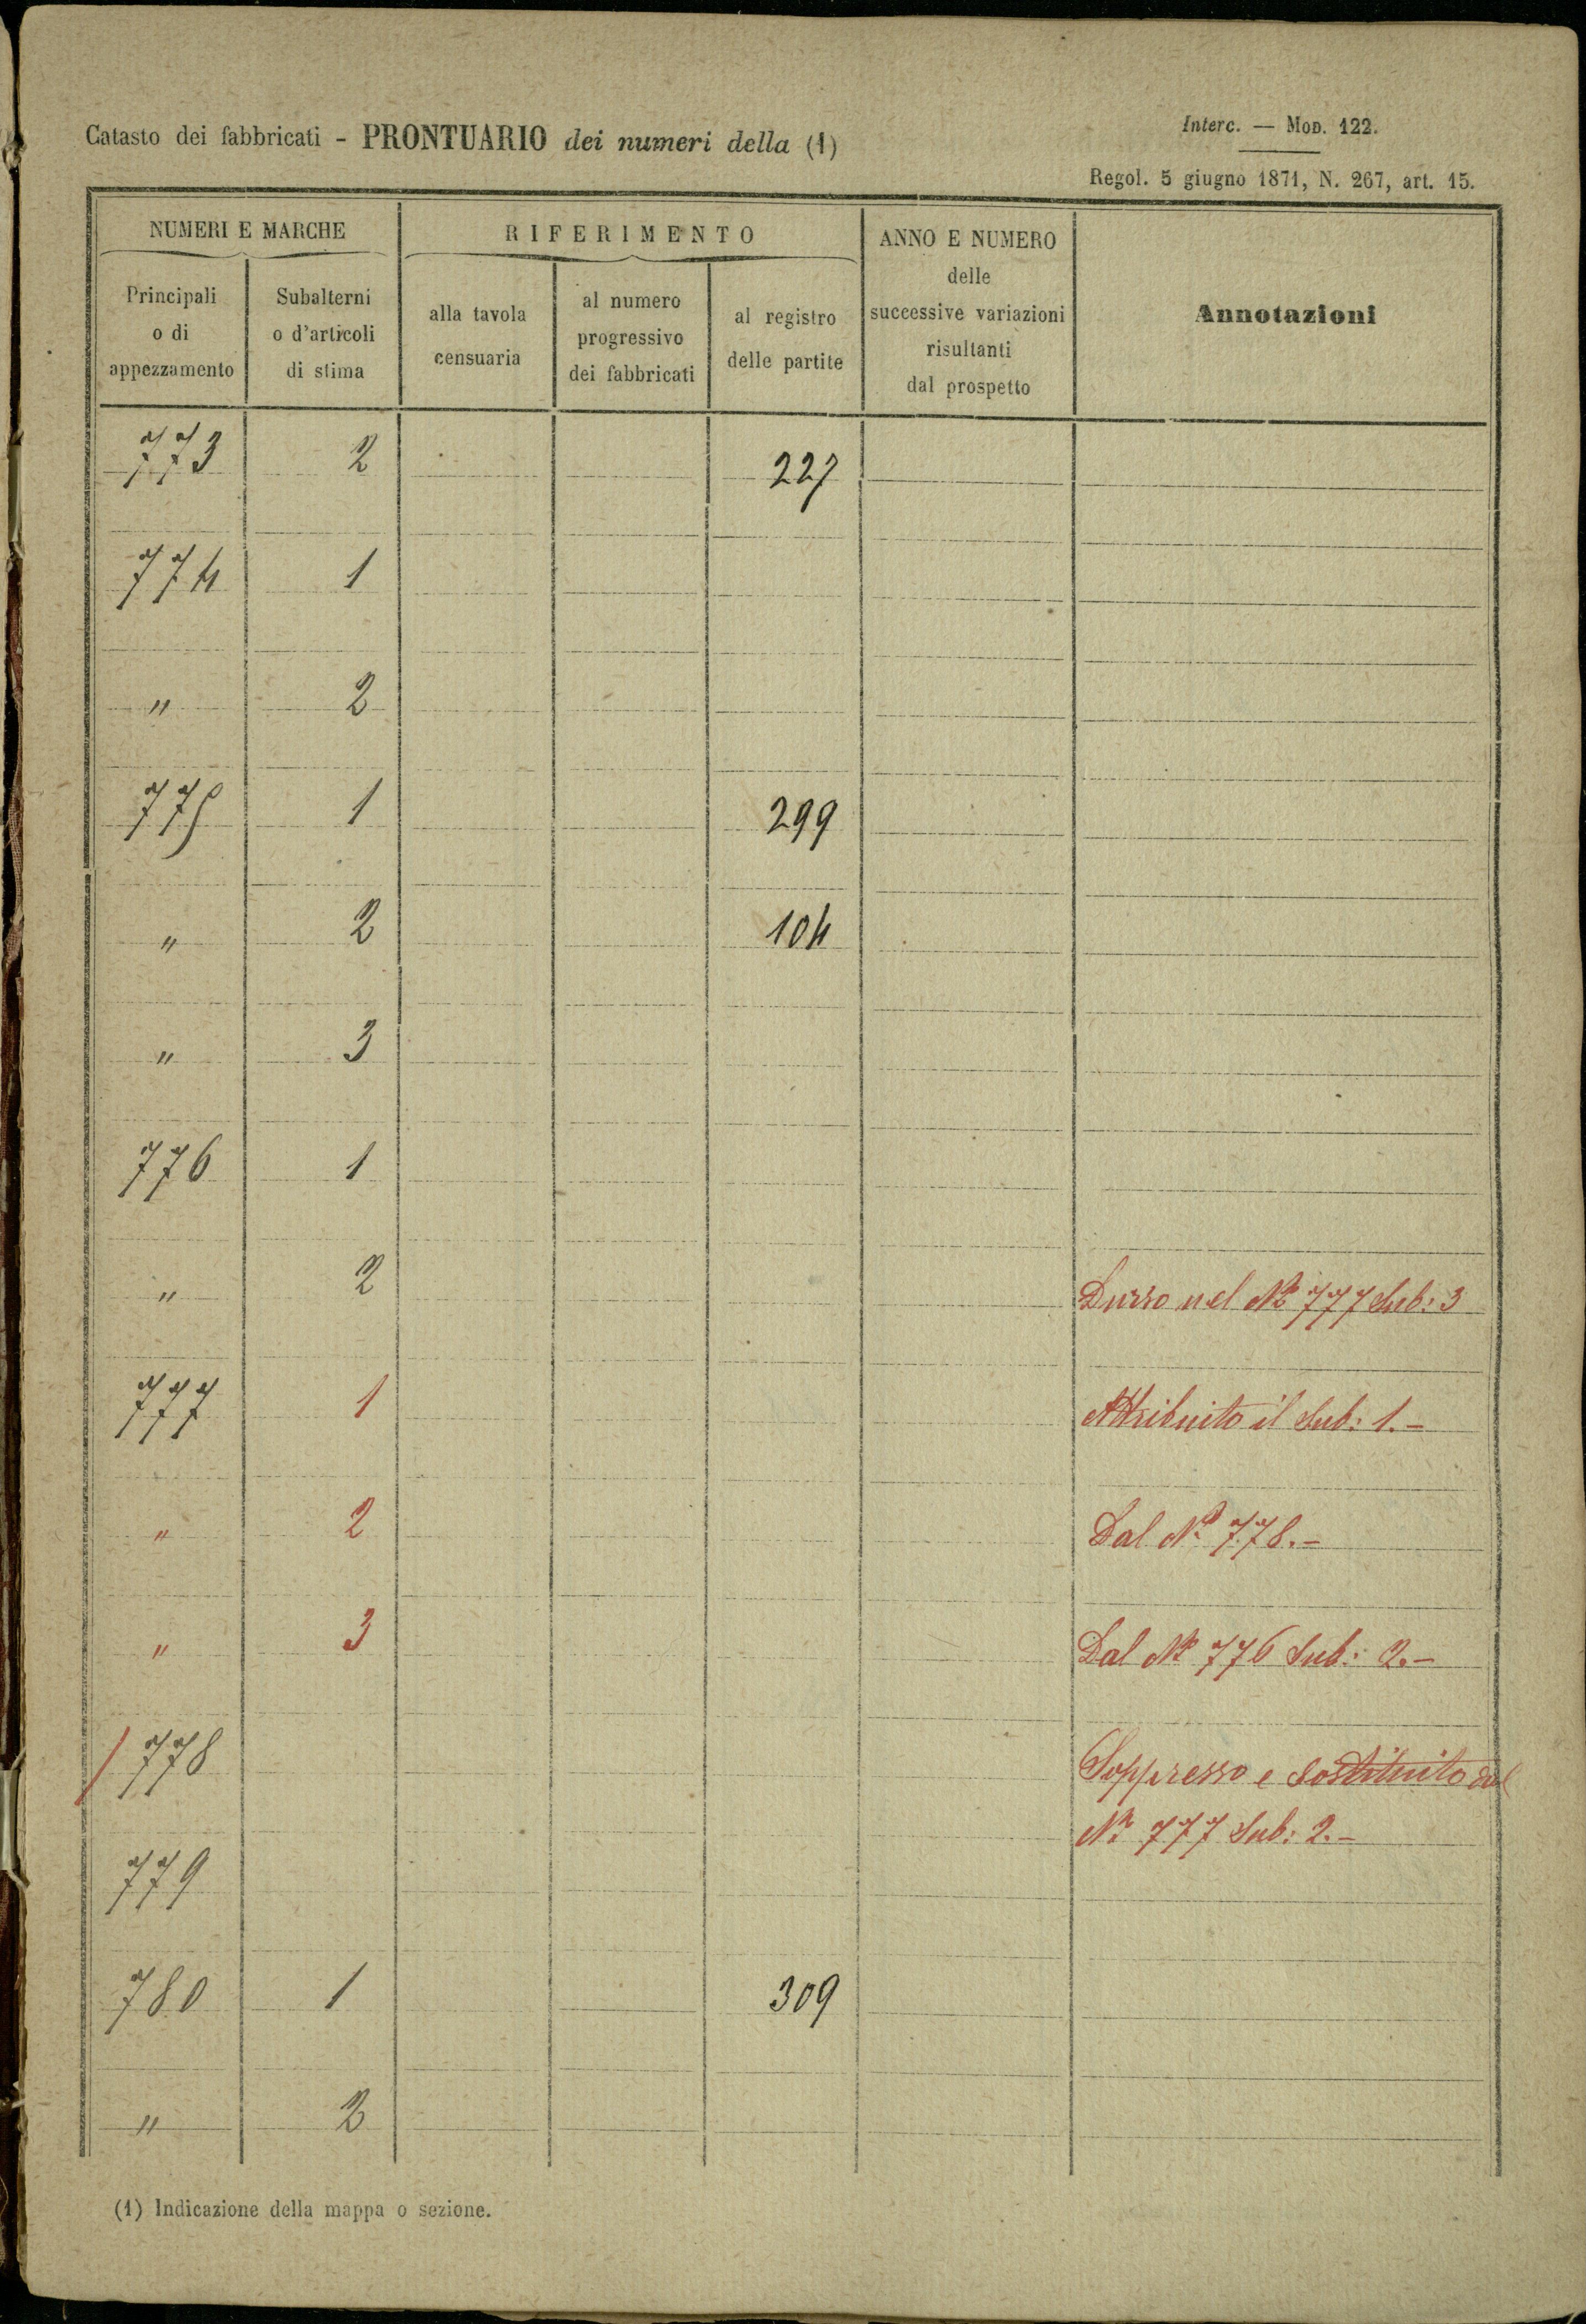 Catasto dei fabbricati - PRONTUARIO dei numeri della (1)
Interc. — MOD. 122.
Regol. 5 giugno 1871, N. 267, art. 15.
NUMERI E MARCHE
RIFERIMENTO
ANNO E NUMERO
delle
successive variazioni
risultanti
dal prospetto
Annotazioni
Principali
o di
appezzamento
Subalterni
o d'articoli
di stima
alla tavola
censuaria
al numero
progressivo
dei fabbricati
al registro
delle partite
773 2 227
774 1
" 2
775 1 299
" 2 104
" 3
776 1
" 2 nel No 777 Sub: 3
777 1 Attribuito il Sub: 1.-
" 2 Dal No 778.-
" 3 Dal No 776 Sub: 2.-
/ 778 Soppresso e sostituito dal
No 777 Sub: 2.-
779
780 1 309
" 2
(1) Indicazione della mappa o sezione.